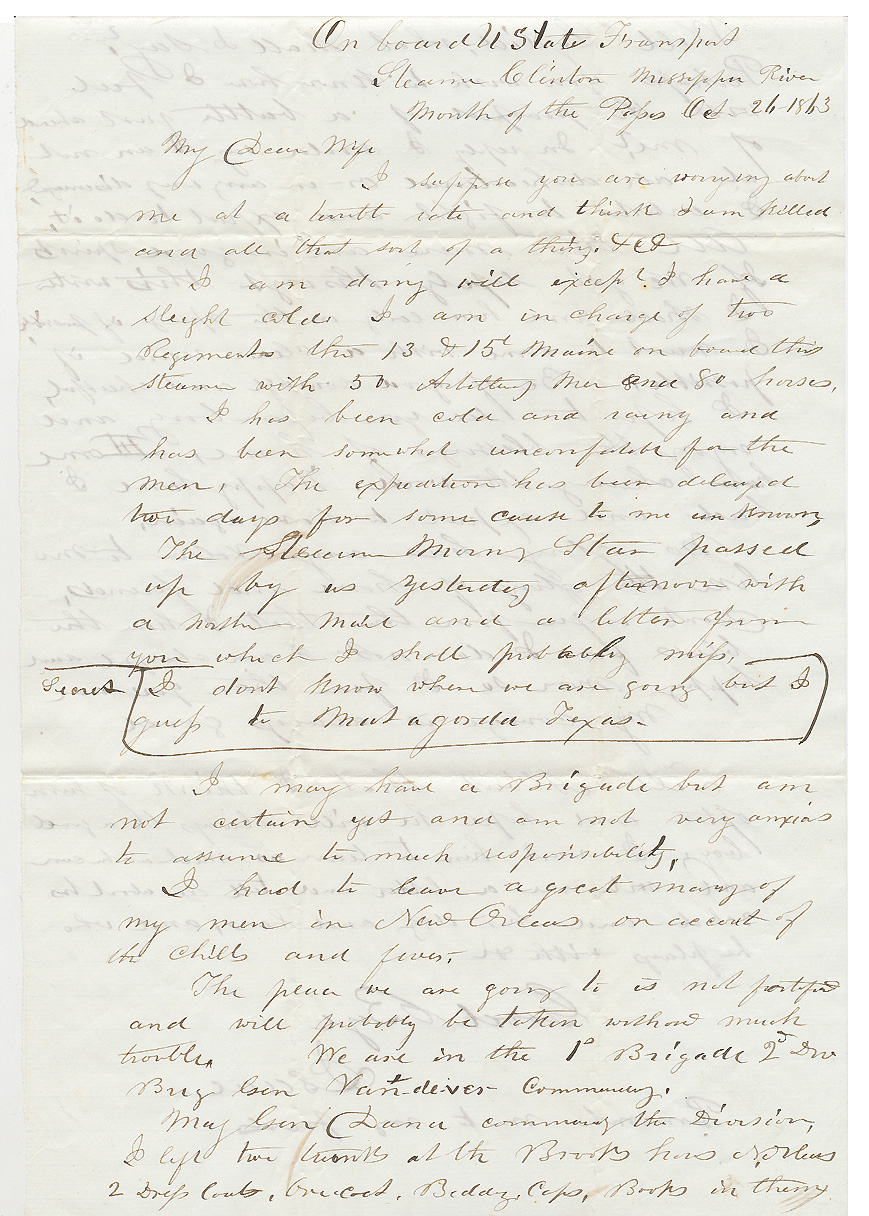 On board U State Transport
Steamer Clinton Mississippi River
Mouth of the Pass Oct 26 1863
My Dear Wife
I suppose you are worrying about
me at a terrible rate and think I am killed
and all that sort of a thing. &c&
I am doing well except I have a
sleight cold. I am in charge of two
Regiments the 13 & 15t Maine on board this
steamer with 50 Artillery men and 80 horses.
I has been cold and rainy and
has been somewhat unconfortable for the
men. The expedition has been delayed
two days for some cause to me unknown,
The Steamer Morning Star passed
up by us yesterday afternoon with
a northern mail and a letter from
you which I shall probably miss.
Secret I dont know where we are going but I
guess to Matagorda Texas.
I may have a Brigade but am
not certain yet and am not very anxias
to assume to much responsibility,
I had to leave a great many of
my men in New Orleas on accout of
the chills and fever.
The place we are going to is not fortified
and will probably be taken without much
trouble. We are in the 1st Brigade 2d Div
Brig Gen Vandever Commanding.
Maj Gen Dana commands the Division,
I left two trunks at the Brooks hous N Orleas
2 Dress Coats, Overcoat, Bedding, Caps, Books in them